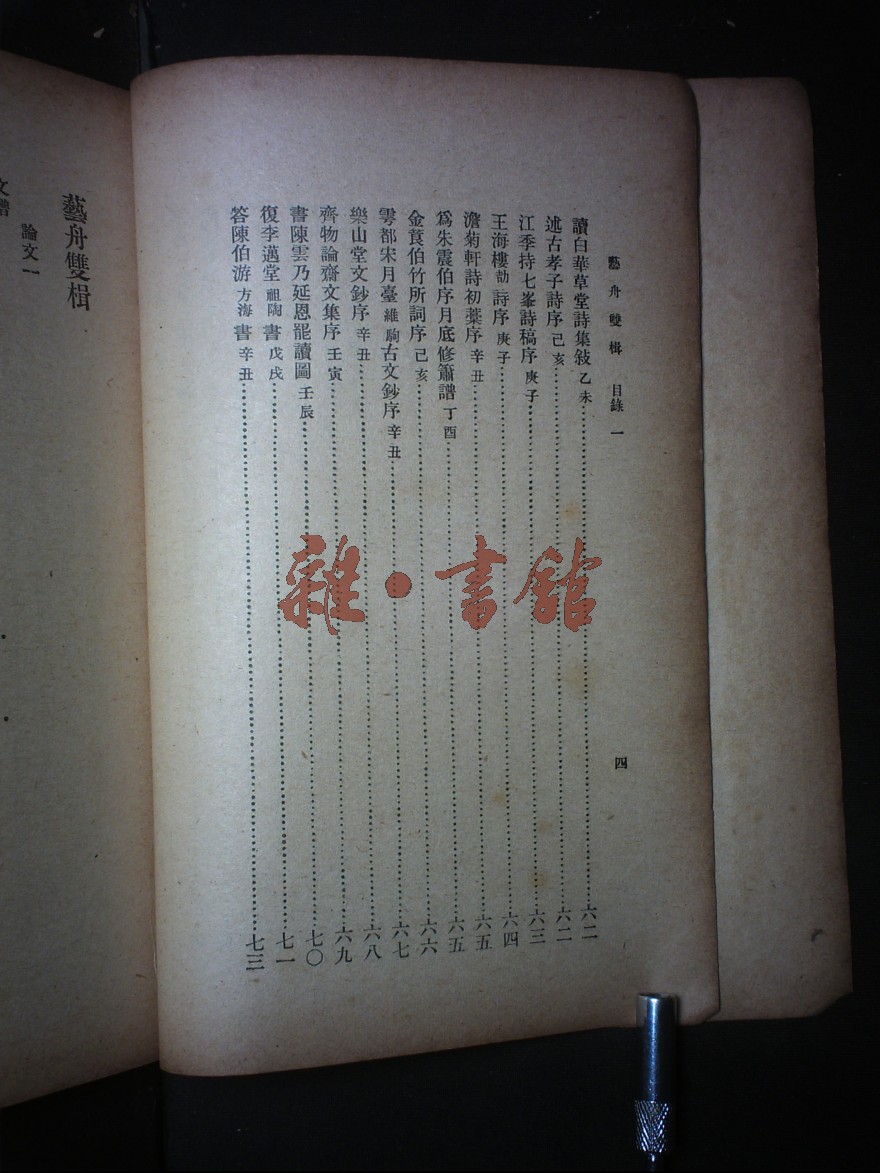 藝舟雙楫 目錄一 四
讀白華草堂詩集敍 乙未……六二
述古孝子詩序 己亥……六二
江季持七峯詩稿序 庚子……六三
王海樓劼詩序 庚子……六四
澹菊軒詩初藁序 辛丑……六五
爲朱震伯序月底修簫譜 丁酉……六五
金筤伯竹所詞序 己亥……六六
雩都宋月臺維駒古文鈔序 辛丑……六七
樂山堂文鈔序 辛丑……六八
齊物論齋文集序 壬寅……六九
書陳雲乃延恩罷讀圖 壬辰……七〇
復李邁堂祖陶書 戊戌……七一
答陳伯游方海書 辛丑……七三
藝舟雙楫
論文一
文譜
雜·書館